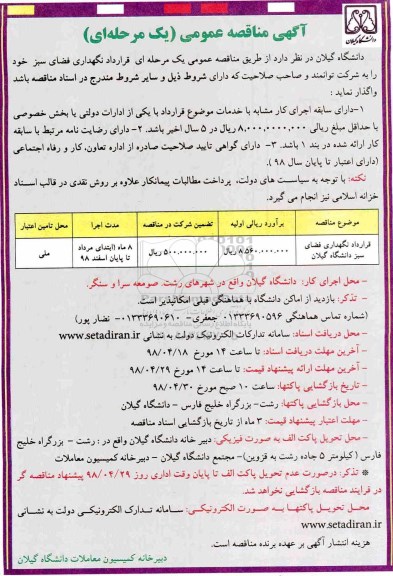 دانشگاه گیلان
آگهی مناقصه عمومی (یک مرحله‌ای)
دانشگاه گیلان در نظر دارد از طریق مناقصه عمومی یک مرحله ای قرارداد نگهداری فضای سبز خود
را به شرکت توانمند و صاحب صلاحیت که دارای شروط ذیل و سایر شروط مندرج در اسناد مناقصه باشد
واگذار نماید :
۱-دارای سابقه اجرای کار مشابه با خدمات موضوع قرارداد با یکی از ادارات دولتی یا بخش خصوصی
با حداقل مبلغ ریالی ۸.۰۰۰.۰۰۰.۰۰۰ ریال در ۵ سال اخیر باشد. ۲- دارای رضایت نامه مرتبط با سابقه
کار ارائه شده در بند ۱ باشد. ۳- دارای گواهی تایید صلاحیت صادره از اداره تعاون، کار و رفاه اجتماعی
(دارای اعتبار تا پایان سال ۹۸ ).
نکته: با توجه به سیاست های دولت، پرداخت مطالبات پیمانکار علاوه بر روش نقدی در قالب اسناد
خزانه اسلامی نیز انجام می گیرد.
موضوع مناقصه برآورد ریالی اولیه تضمین شرکت در مناقصه مدت اجرا محل تامین اعتبار
قرارداد نگهداری فضای سبز دانشگاه گیلان ۸.۵۶۰.۰۰۰.۰۰۰ ریال ۵۰۰.۰۰۰.۰۰۰ ریال ۸ ماه (ابتدای مرداد تا پایان اسفند ۹۸ ملی
– محل اجرای کار: دانشگاه گیلان واقع در شهرهای رشت، صومعه سرا و سنگر.
– تذکر: بازدید از اماکن دانشگاه با هماهنگی قبلی امکانپذیر است.
(شماره تماس هماهنگی ۰۱۳۳۳۶۹۰۵۹۶ جعفری– ۰۱۳۳۳۶۹۰۶۱۰ نضار پور)
– محل دریافت اسناد: سامانه تدارکات الکترونیک دولت به نشانی www.setadiran.ir
– آخرین مهلت دریافت اسناد: تا ساعت ۱۴ مورخ ۹۸/۰۴/۱۸
– آخرین مهلت ارائه پیشنهاد قیمت: تا ساعت ۱۴ مورخ ۹۸/۰۴/۲۹
– تاریخ بازگشایی پاکتها: ساعت ۱۰ صبح مورخ ۹۸/۰۴/۳۰
– محل بازگشایی پاکتها: رشت– بزرگراه خلیج فارس – دانشگاه گیلان
– مهلت اعتبار پیشنهاد قیمت: ۳ ماه از تاریخ بازگشایی اسناد مناقصه
– محل تحویل پاکت الف به صورت فیزیکی: دبیر خانه دانشگاه گیلان واقع در : رشت – بزرگراه خلیج
فارس (کیلومتر ۵ جاده رشت به قزوین)– مجتمع دانشگاه گیلان – دبیرخانه کمیسیون معاملات
* تذکر: درصورت عدم تحویل پاکت الف تا پایان وقت اداری روز ۹۸/۰۴/۲۹ پیشنهاد مناقصه گر
در فرایند مناقصه بازگشایی نخواهد شد.
محل تحویل پاکتها به صورت الکترونیکی: سامانه تدارک الکترونیکی دولت به نشانی
www.setadiran.ir
هزینه انتشار آگهی بر عهده برنده مناقصه است.
دبیرخانه کمیسیون معاملات دانشگاه گیلان